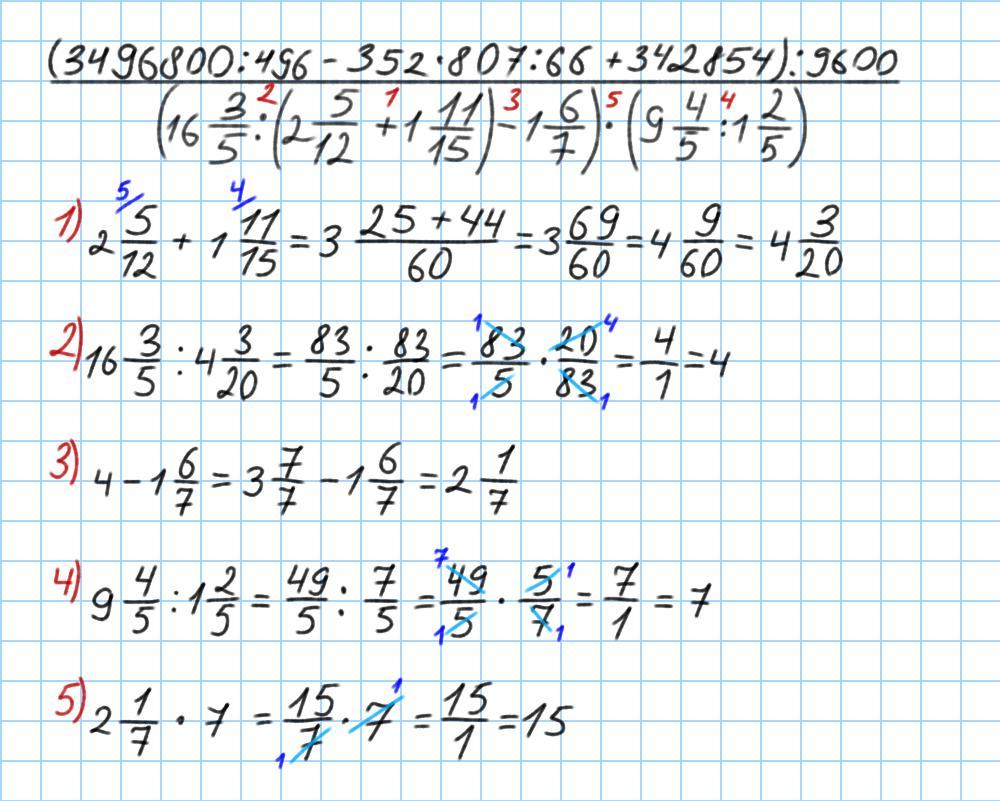 (3496800:496 - 352·807:66 + 342854):9600
(16 3/5 :² (2 5/12 +¹ 1 11/15) -³ 1 6/7) ·⁵ (9 4/5 :⁴ 1 2/5)
1) 2 5/12 ⁵/ + 1 11/15 ⁴/ = 3 (25 + 44)/60 = 3 69/60 = 4 9/60 = 4 3/20
2) 16 3/5 : 4 3/20 = 83/5 : 83/20 = 83/5 · 20/83 = 4/1 = 4
3) 4 - 1 6/7 = 3 7/7 - 1 6/7 = 2 1/7
4) 9 4/5 : 1 2/5 = 49/5 : 7/5 = 49/5 · 5/7 = 7/1 = 7
5) 2 1/7 · 7 = 15/7 · 7 = 15/1 = 15